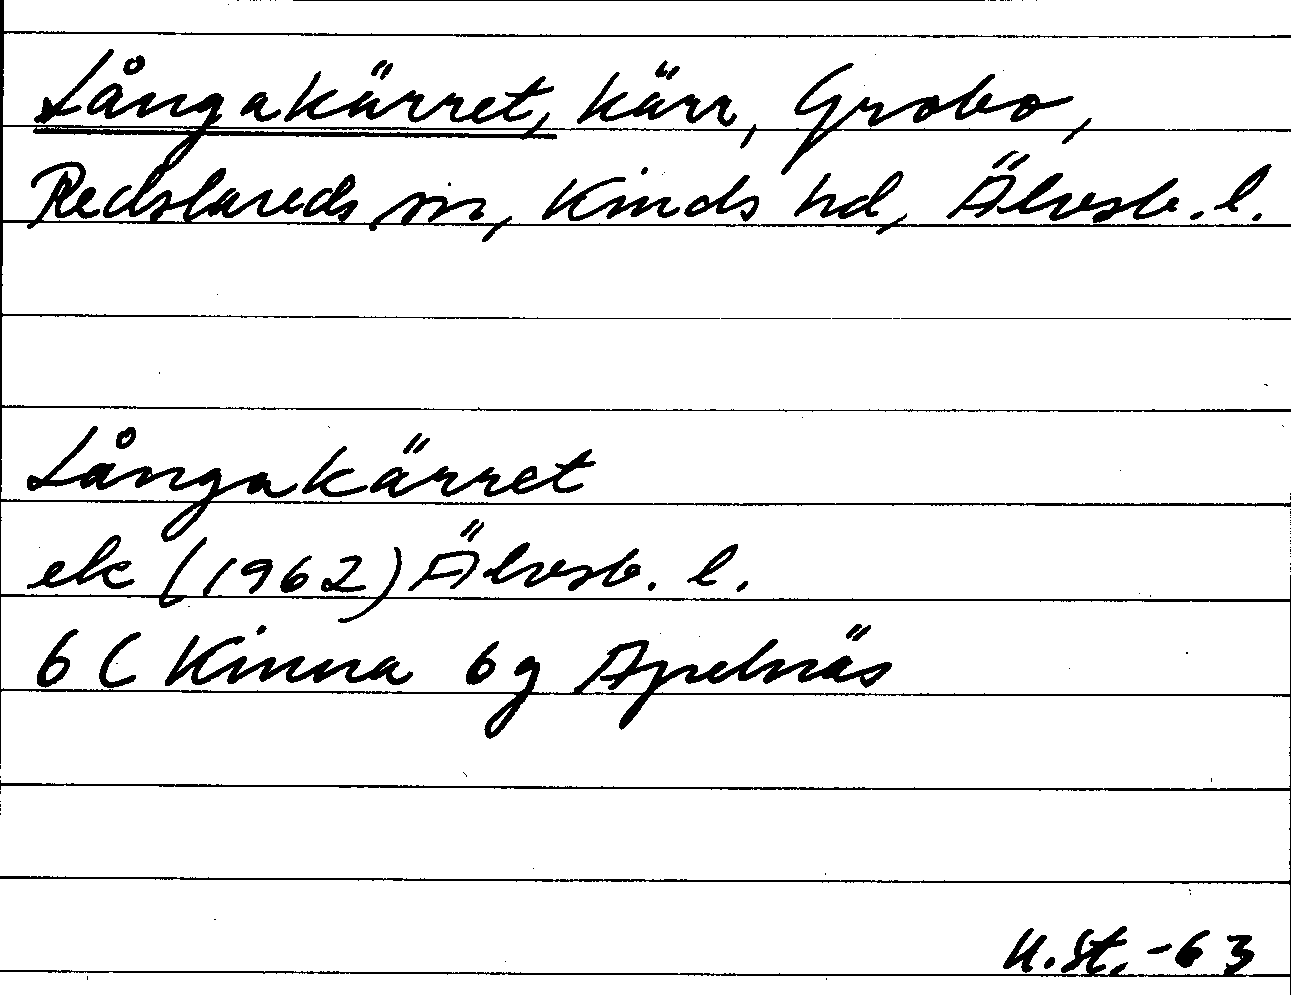 Långakärret, kärr, Grobo,
Redslareds sn, Kinds hd, Älvsb. l.
Långakärret
ek (1962) Älvsb. l.
6 C Kinna 6g Apelnäs
U. St. -63